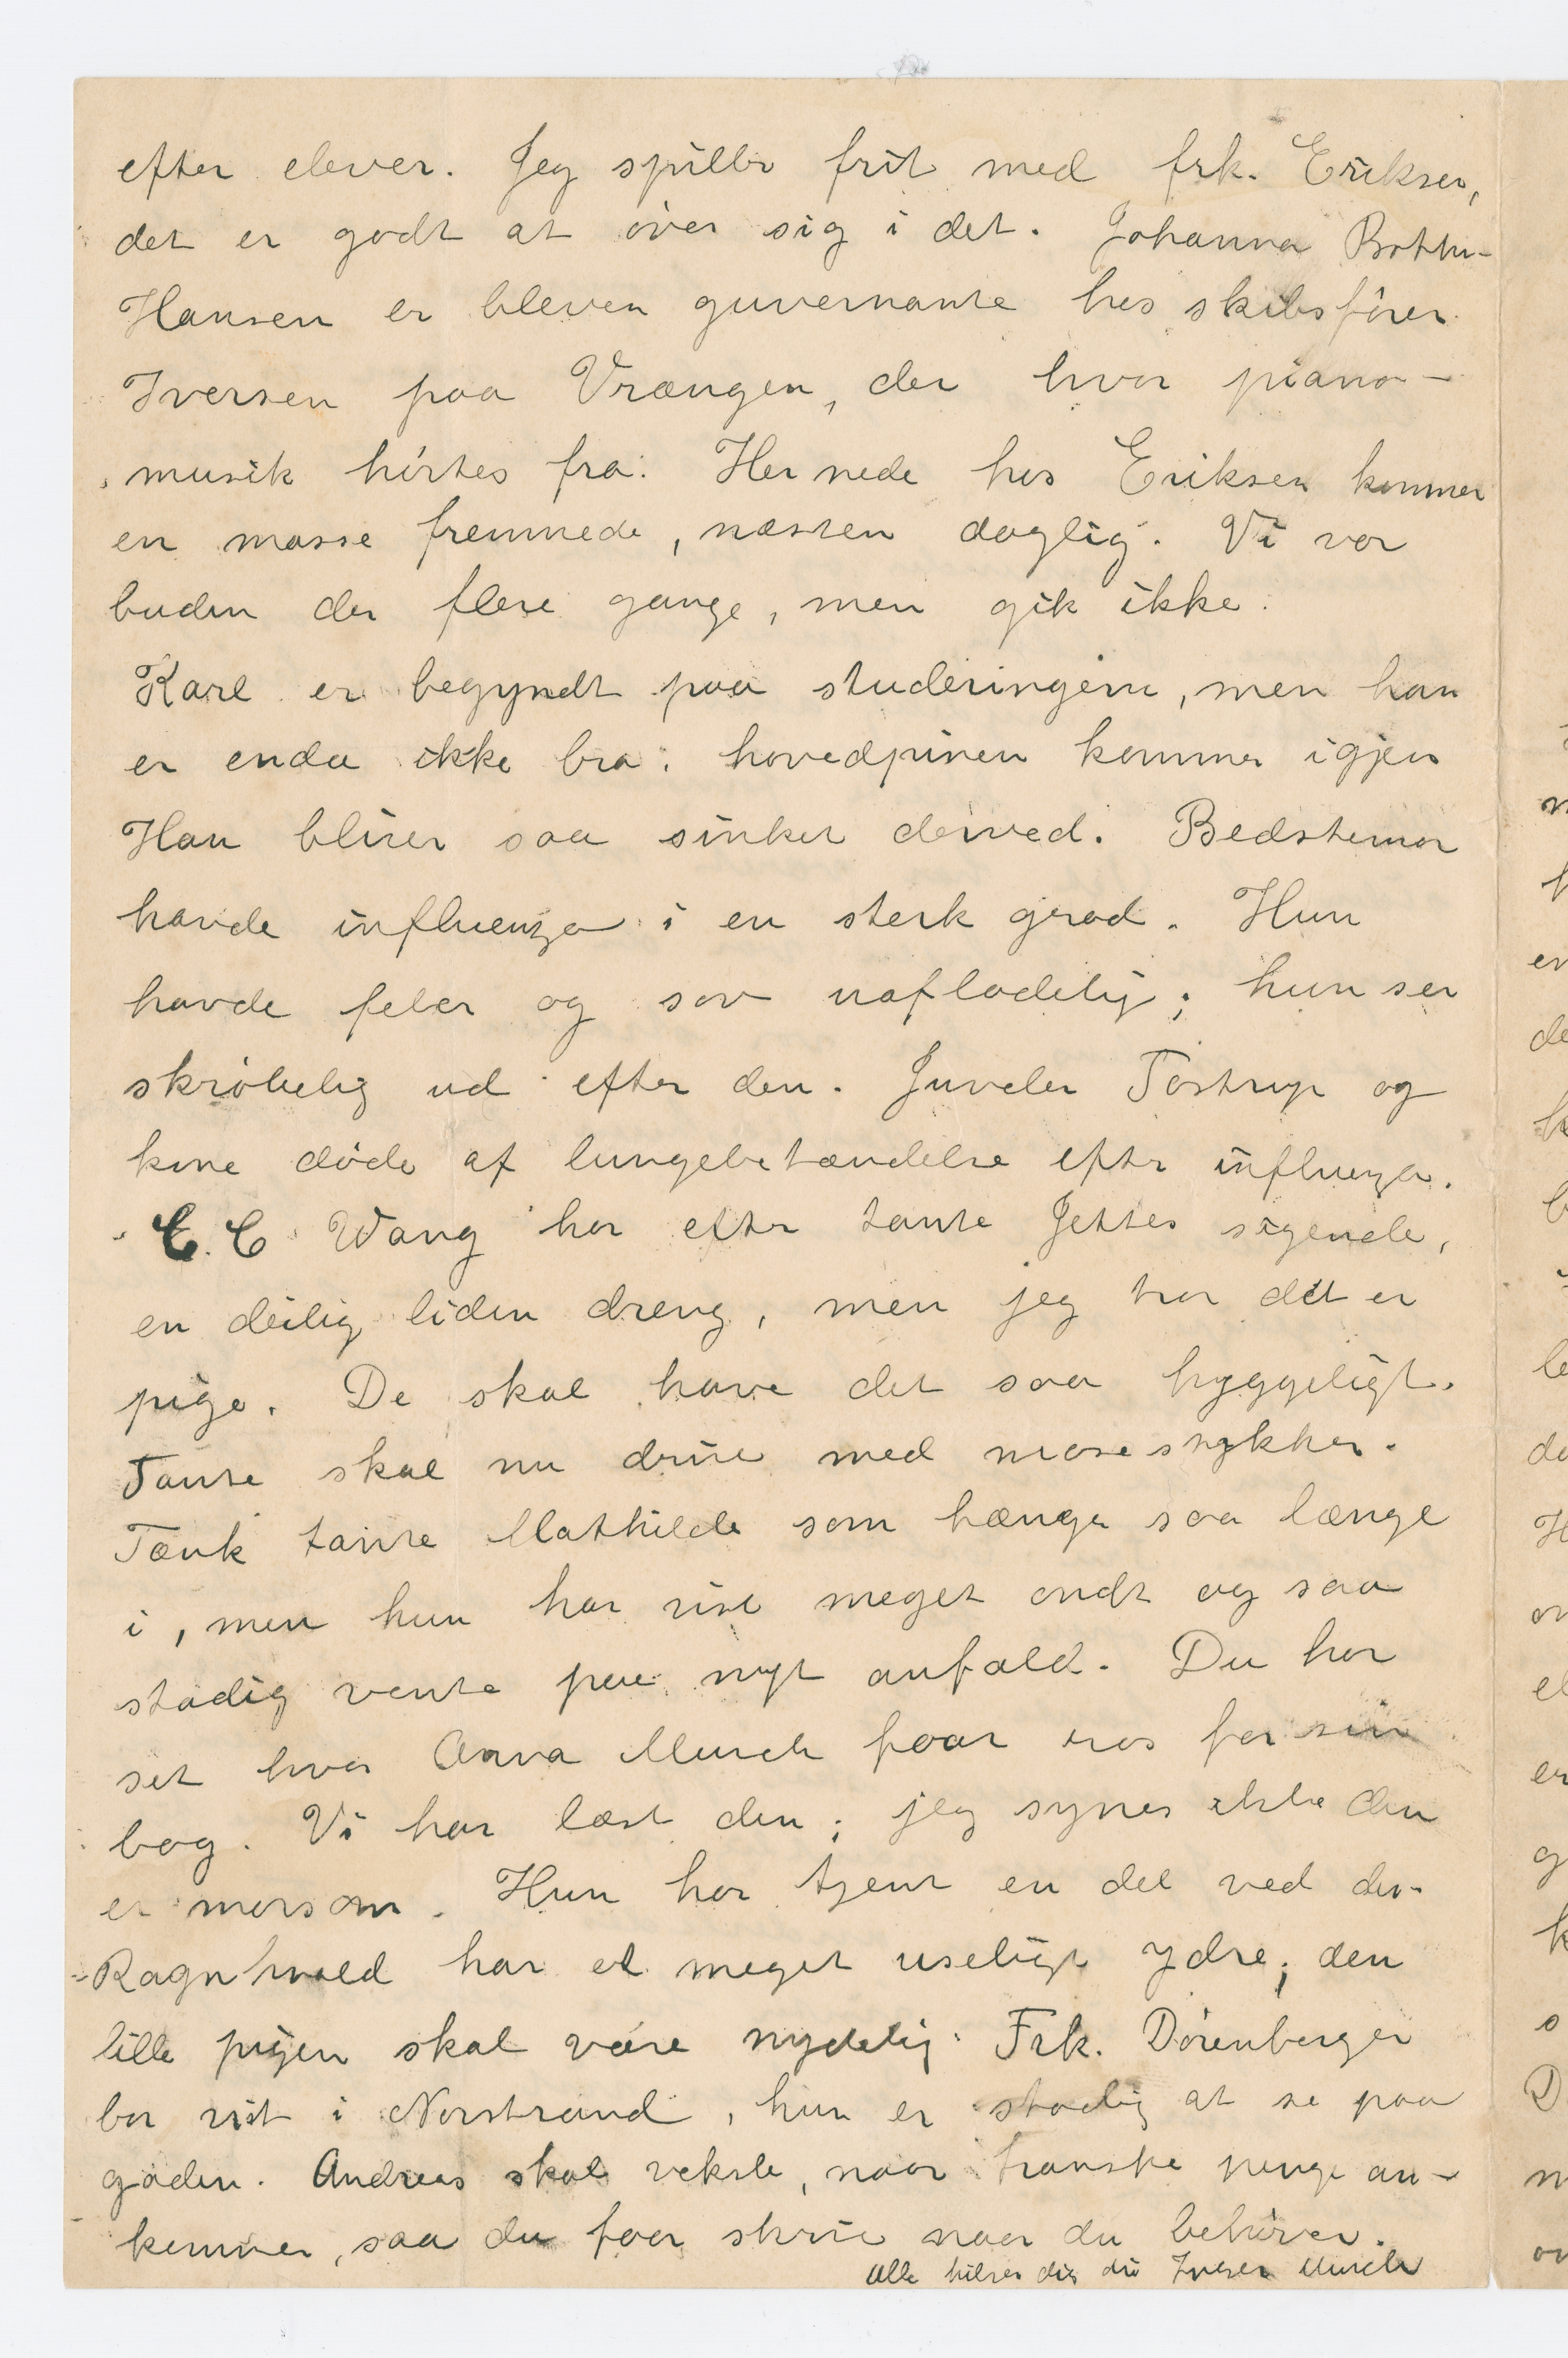 efter elever. Jeg spiller frit med frk. Eriksen,
det er godt at över sig i det. Johanna Botten-
Hansen er bleven guvernante hos skibsfører
Iversen paa Vrængen, der hvor piano-
musik hørtes fra. Her nede hos Eriksen kommer
en masse fremmede, næsten daglig. Vi var
buden der flere gange, men gik ikke.
Karl er begyndt paa studeringerne, men han
er enda ikke bra: hovedpinen kommer igjen
Han bliver saa sinket derved. Bedstemor
havde influenza i en sterk grad. Hun
havde feber og sov uafladelig; hun ser
skrøbelig ud efter den. Juveler Tostrup og
kone døde af lungebetændelse efter influenza.
C. C Wang har efter tante Jettes sigende,
en deilig liden dreng, men jeg tror det er
pige. De skal have det saa hyggeligt.
Tante skal nu drive med mosestykker.
Tænk tante Mathilde som hænger saa længe
i, men hun har vist meget ondt og saa
stadig vente paa nyt anfald. Du har
set hvor Anna Munch faar ros for sin
bog. Vi har læst den; jeg synes ikke den
er morsom. Hun har tjent en del ved den.
Ragnhvald har et meget useligt ydre; den
lille pigen skal være nydelig. Frk. Dörenberger
bor vist i Norstrand, hun er stadig at se paa
gaden. Andreas skal veksle, naar franske penge an-
kommer, saa du faar skrive naar du behøver.
Alle hilser dig din Inger Munch